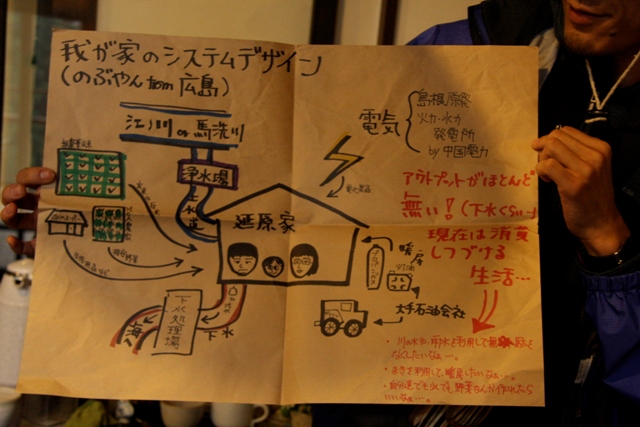 我が家のシステムデザイン
(のぶやん from 広島)
江ノ川 or 馬洗川
浄水場
上水道
延原家
電気
島根原発
火力・水力
発電所
by 中国電力
アウトプットがほとんど
無い! (下水くらい…)
現在は消費
しつづける
生活…
暖房
灯油
プロパンガス
大手石油会社
下水処理場
下水
海へ
・川の水や、雨水を利用して無駄を
なくしたいなぁ…。
・まきを利用して、暖房したいなぁ…。
・自分達でも少しでも野菜なんか作れたら
いいなぁ…。